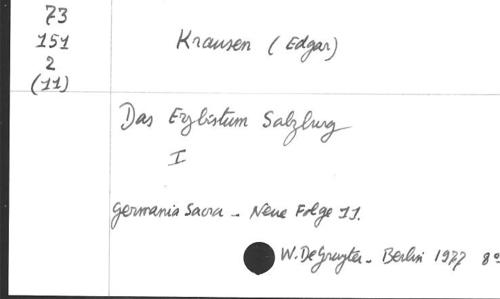 73
151
2
(11)
Krausen (Edgar)
Das Erzbistum Salzburg
I
Germania Sacra - Neue Folge 11.
W. De Gruyter - Berlin 1977 8º